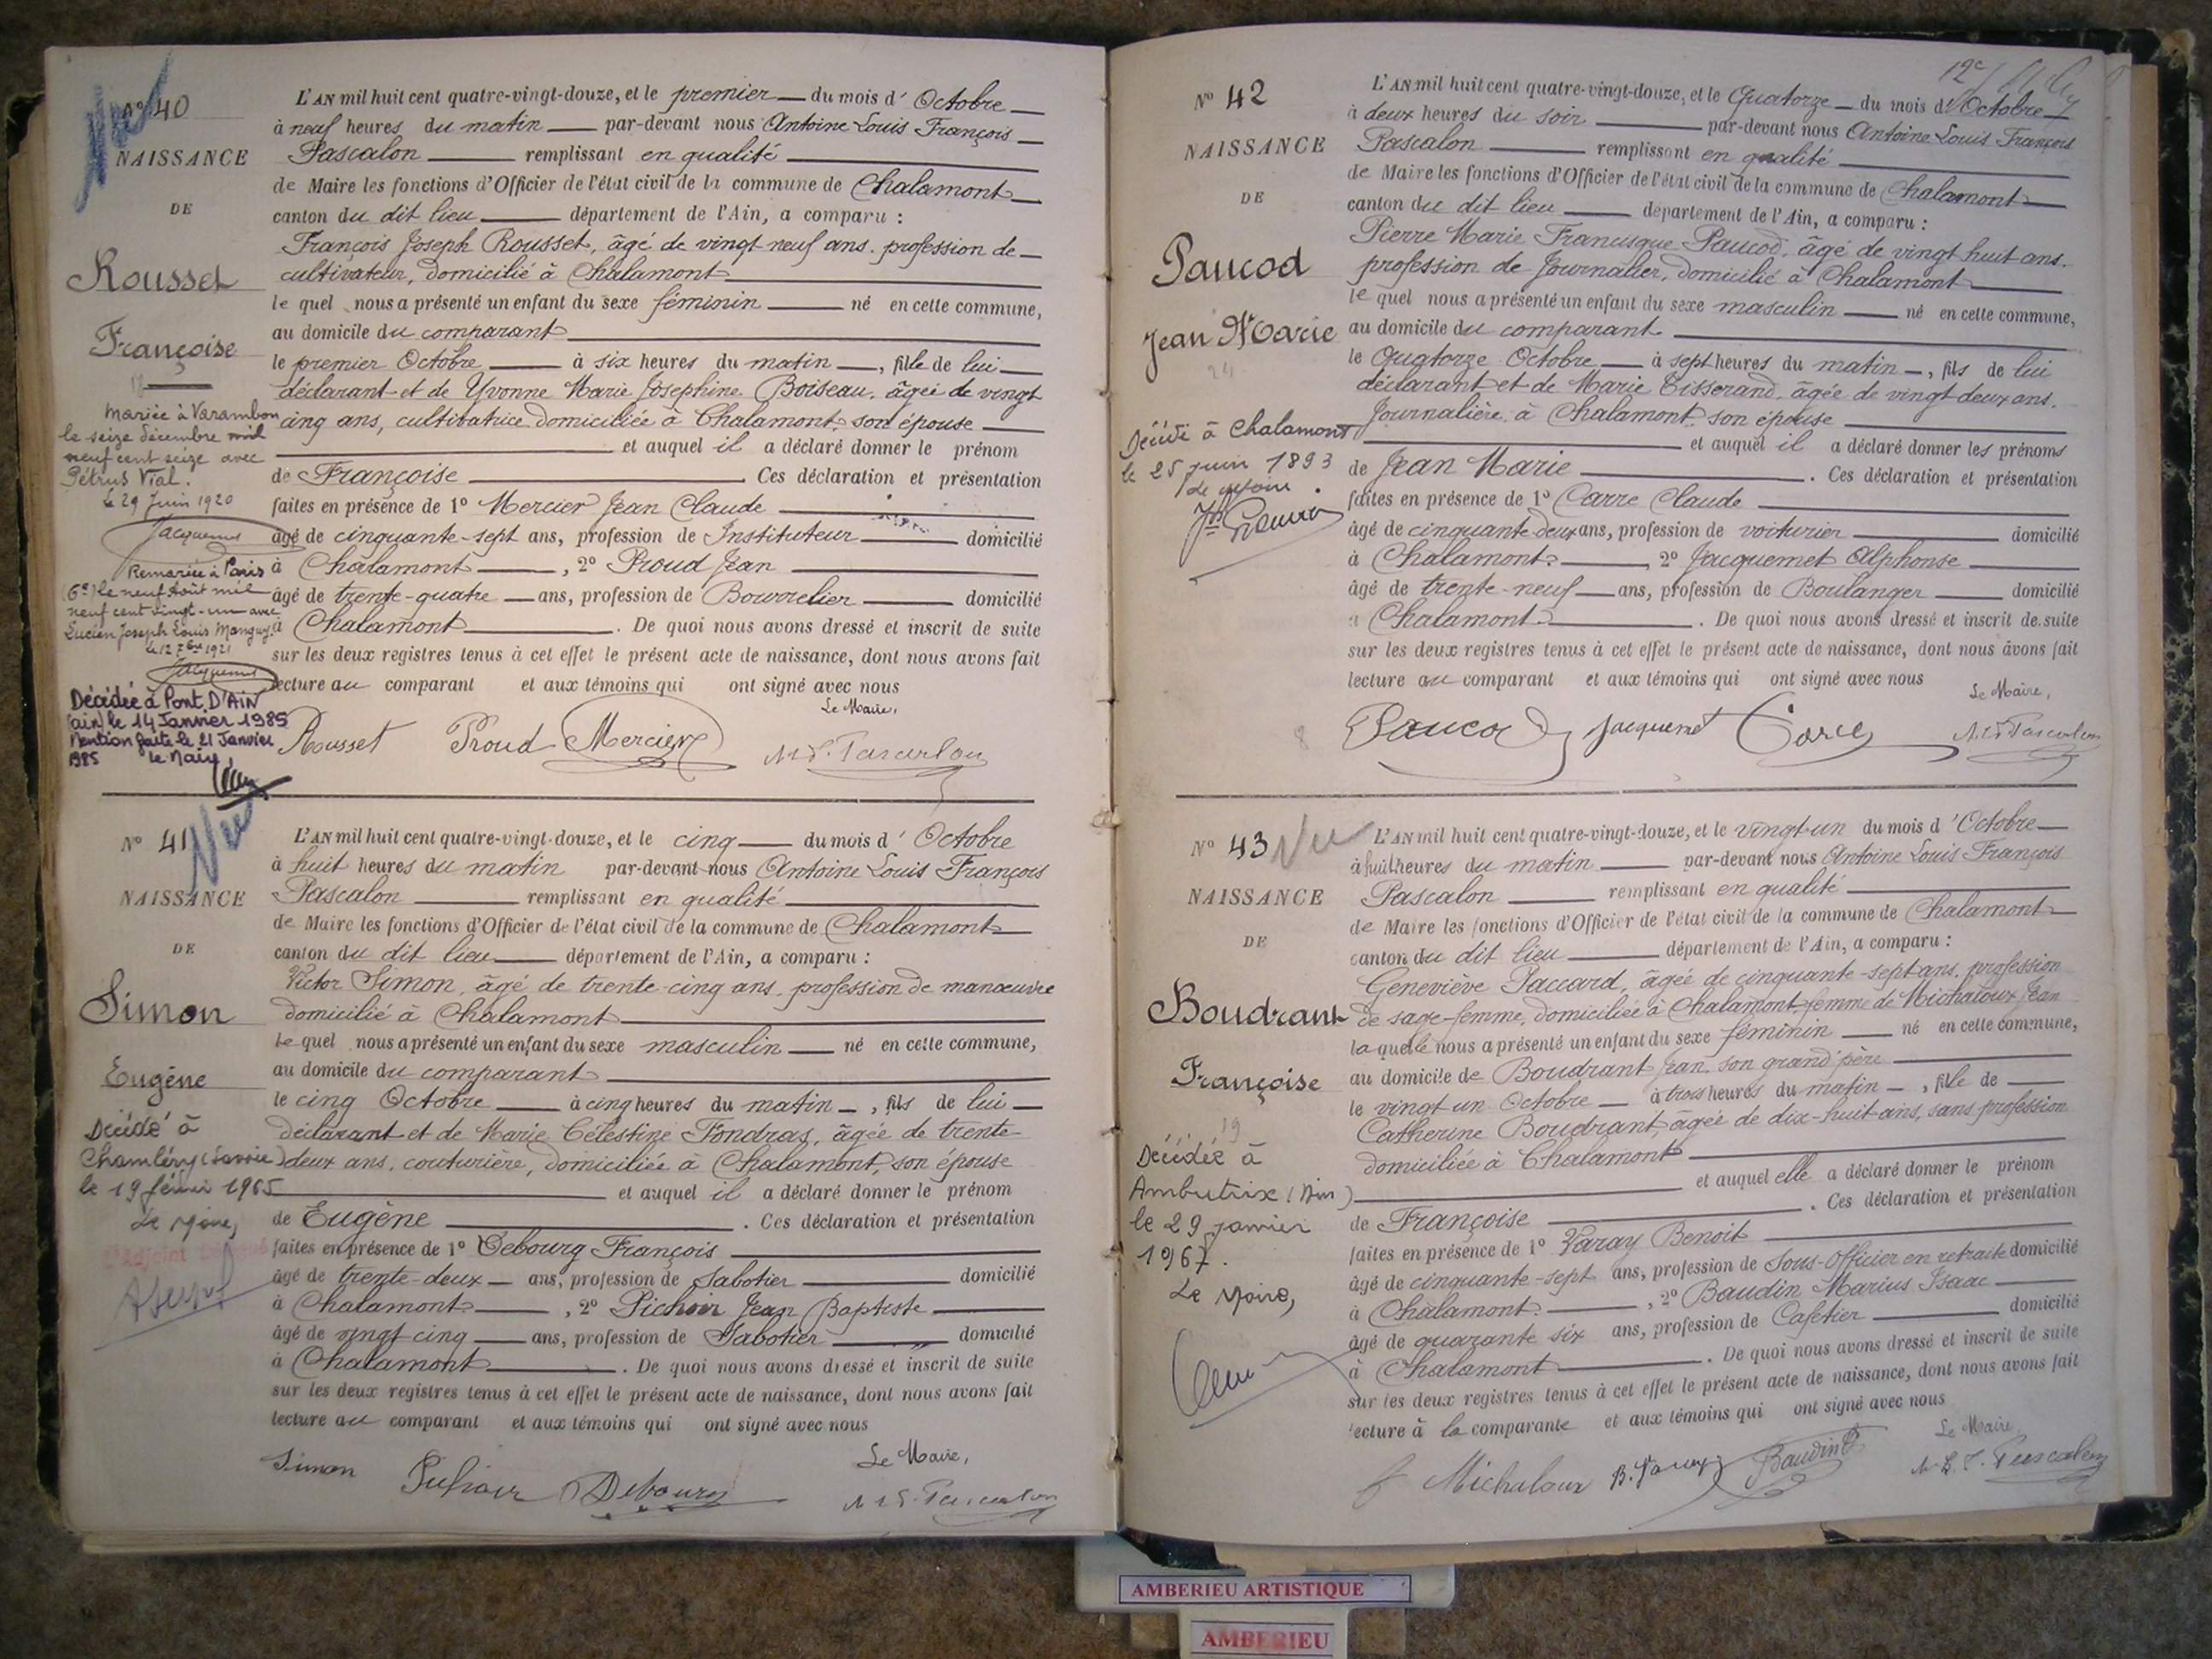 Nº 40
NAISSANCE
DE
Rousset
Françoise
Mariée à Varambon
le seize décembre mil
neuf cent seize avec
Pétrus Vial.
le 29 Juin 1920
Jacquemet
Remariée à Paris
(6e) le neuf Août mil
neuf cent vingt-un avec
Lucien Joseph Louis
le 12 7bre 1921
Jacquemet
Décédée à Pont D'AiN
(ain) le 14 Janvier 1985
Mention faite le 21 Janvier
1985 le Maire,
L'AN mil huit cent quatre-vingt-douze, et le premier du mois d' Octobre
à neuf heures du matin par-devant nous Antoine Louis François
Pascalon remplissant en qualité
de Maire les fonctions d'Officier de l'état civil de la commune de Chalamont
canton du dit lieu département de l'Ain, a comparu :
François Joseph Rousset, âgé de vingt neuf ans. profession de
cultivateur, domicilié à Chalamont
le quel nous a présenté un enfant du sexe féminin né en cette commune,
au domicile du comparant
le premier Octobre à six heures du matin, fille de lui
déclarant et de Yvonne Marie Josephine Boiseau, âgée de vingt
cinq ans, cultivatrice domiciliée à Chalamont, son épouse
et auquel il a déclaré donner le prénom
de Françoise. Ces déclaration et présentation
faites en présence de 1º Mercier Jean Claude
âgé de cinquante-sept ans, profession de Instituteur domicilié
à Chalamont, 2º Proud Jean
âgé de trente-quatre ans, profession de Bourrelier domicilié
à Chalamont. De quoi nous avons dressé et inscrit de suite
sur les deux registres tenus à cet effet le présent acte de naissance, dont nous avons fait
lecture au comparant et aux témoins qui ont signé avec nous
Le Maire,
Rousset Proud Mercier A.L.F. Pascalon
Nº 41
Vu
NAISSANCE
DE
Simon
Eugène
Décédé à
Chambéry (Savoie)
le 19 février 1965
Le Maire,
L'AN mil huit cent quatre-vingt-douze, et le cinq du mois d' Octobre
à huit heures du matin par-devant nous Antoine Louis François
Pascalon remplissant en qualité
de Maire les fonctions d'Officier de l'état civil de la commune de Chalamont
canton du dit lieu département de l'Ain, a comparu :
Victor Simon, âgé de trente-cinq ans, profession de manœuvre
domicilié à Chalamont
le quel nous a présenté un enfant du sexe masculin né en cette commune,
au domicile du comparant
le cinq Octobre à cinq heures du matin, fils de lui
déclarant et de Marie Célestine Fondras, âgée de trente
deux ans, couturière, domiciliée à Chalamont, son épouse
et auquel il a déclaré donner le prénom
de Eugène. Ces déclaration et présentation
faites en présence de 1º Debourg François
âgé de trente-deux ans, profession de Sabotier domicilié
à Chalamont, 2º Pichoir Jean Baptiste
âgé de vingt cinq ans, profession de Sabotier domicilié
à Chalamont. De quoi nous avons dressé et inscrit de suite
sur les deux registres tenus à cet effet le présent acte de naissance, dont nous avons fait
lecture au comparant et aux témoins qui ont signé avec nous
Le Maire,
Simon Pichoir Debourg A.L.F. Pascalon
12e
Nº 42
NAISSANCE
DE
Paucod
Jean Marie
24
Décédé à Chalamont
le 25 juin 1893
Le Maire
L'AN mil huit cent quatre-vingt-douze, et le Quatorze du mois d' Octobre
à deux heures du soir par-devant nous Antoine Louis François
Pascalon remplissant en qualité
de Maire les fonctions d'Officier de l'état civil de la commune de Chalamont
canton du dit lieu département de l'Ain, a comparu :
Pierre Marie Francisque Paucod, âgé de vingt huit ans.
profession de Journalier, domicilié à Chalamont
le quel nous a présenté un enfant du sexe masculin né en cette commune,
au domicile du comparant
le Quatorze Octobre à sept heures du matin, fils de lui
déclarant et de Marie Tisserand, âgée de vingt deux ans.
Journalière à Chalamont son épouse
et auquel il a déclaré donner les prénoms
de Jean Marie. Ces déclaration et présentation
faites en présence de 1º Carre Claude
âgé de cinquante-deux ans, profession de voiturier domicilié
à Chalamont, 2º Jacquemet Alphonse
âgé de trente-neuf ans, profession de Boulanger domicilié
à Chalamont. De quoi nous avons dressé et inscrit de suite
sur les deux registres tenus à cet effet le présent acte de naissance, dont nous avons fait
lecture au comparant et aux témoins qui ont signé avec nous
Le Maire,
8 Paucod Jacquemet Carre A.L.F. Pascalon
Nº 43
Vu
NAISSANCE
DE
Boudrant
Françoise
19
Décédée à
Ambutrix (Ain)
le 29 janvier
1967.
Le Maire,
L'AN mil huit cent quatre-vingt-douze, et le vingt-un du mois d' Octobre
à huit heures du matin par-devant nous Antoine Louis François
Pascalon remplissant en qualité
de Maire les fonctions d'Officier de l'état civil de la commune de Chalamont
canton du dit lieu département de l'Ain, a comparu :
Geneviève Paccard, âgée de cinquante-sept ans, profession
de sage-femme, domiciliée à Chalamont, femme de Michaloux Jean
la quelle nous a présenté un enfant du sexe féminin né en cette commune,
au domicile de Boudrant Jean son grand'père
le vingt un Octobre à trois heures du matin, fille de
Catherine Boudrant, âgée de dix-huit ans, sans profession
domiciliée à Chalamont
et auquel elle a déclaré donner le prénom
de Françoise. Ces déclaration et présentation
faites en présence de 1º Varay Benoit
âgé de cinquante-sept ans, profession de Sous-Officier en retraite domicilié
à Chalamont, 2º Baudin Marius Isaac
âgé de quarante six ans, profession de Cafetier domicilié
à Chalamont. De quoi nous avons dressé et inscrit de suite
sur les deux registres tenus à cet effet le présent acte de naissance, dont nous avons fait
lecture à la comparante et aux témoins qui ont signé avec nous
Le Maire,
f Michaloux B. Varay Baudin A.L.F. Pascalon
AMBERIEU ARTISTIQUE
AMBERIEU